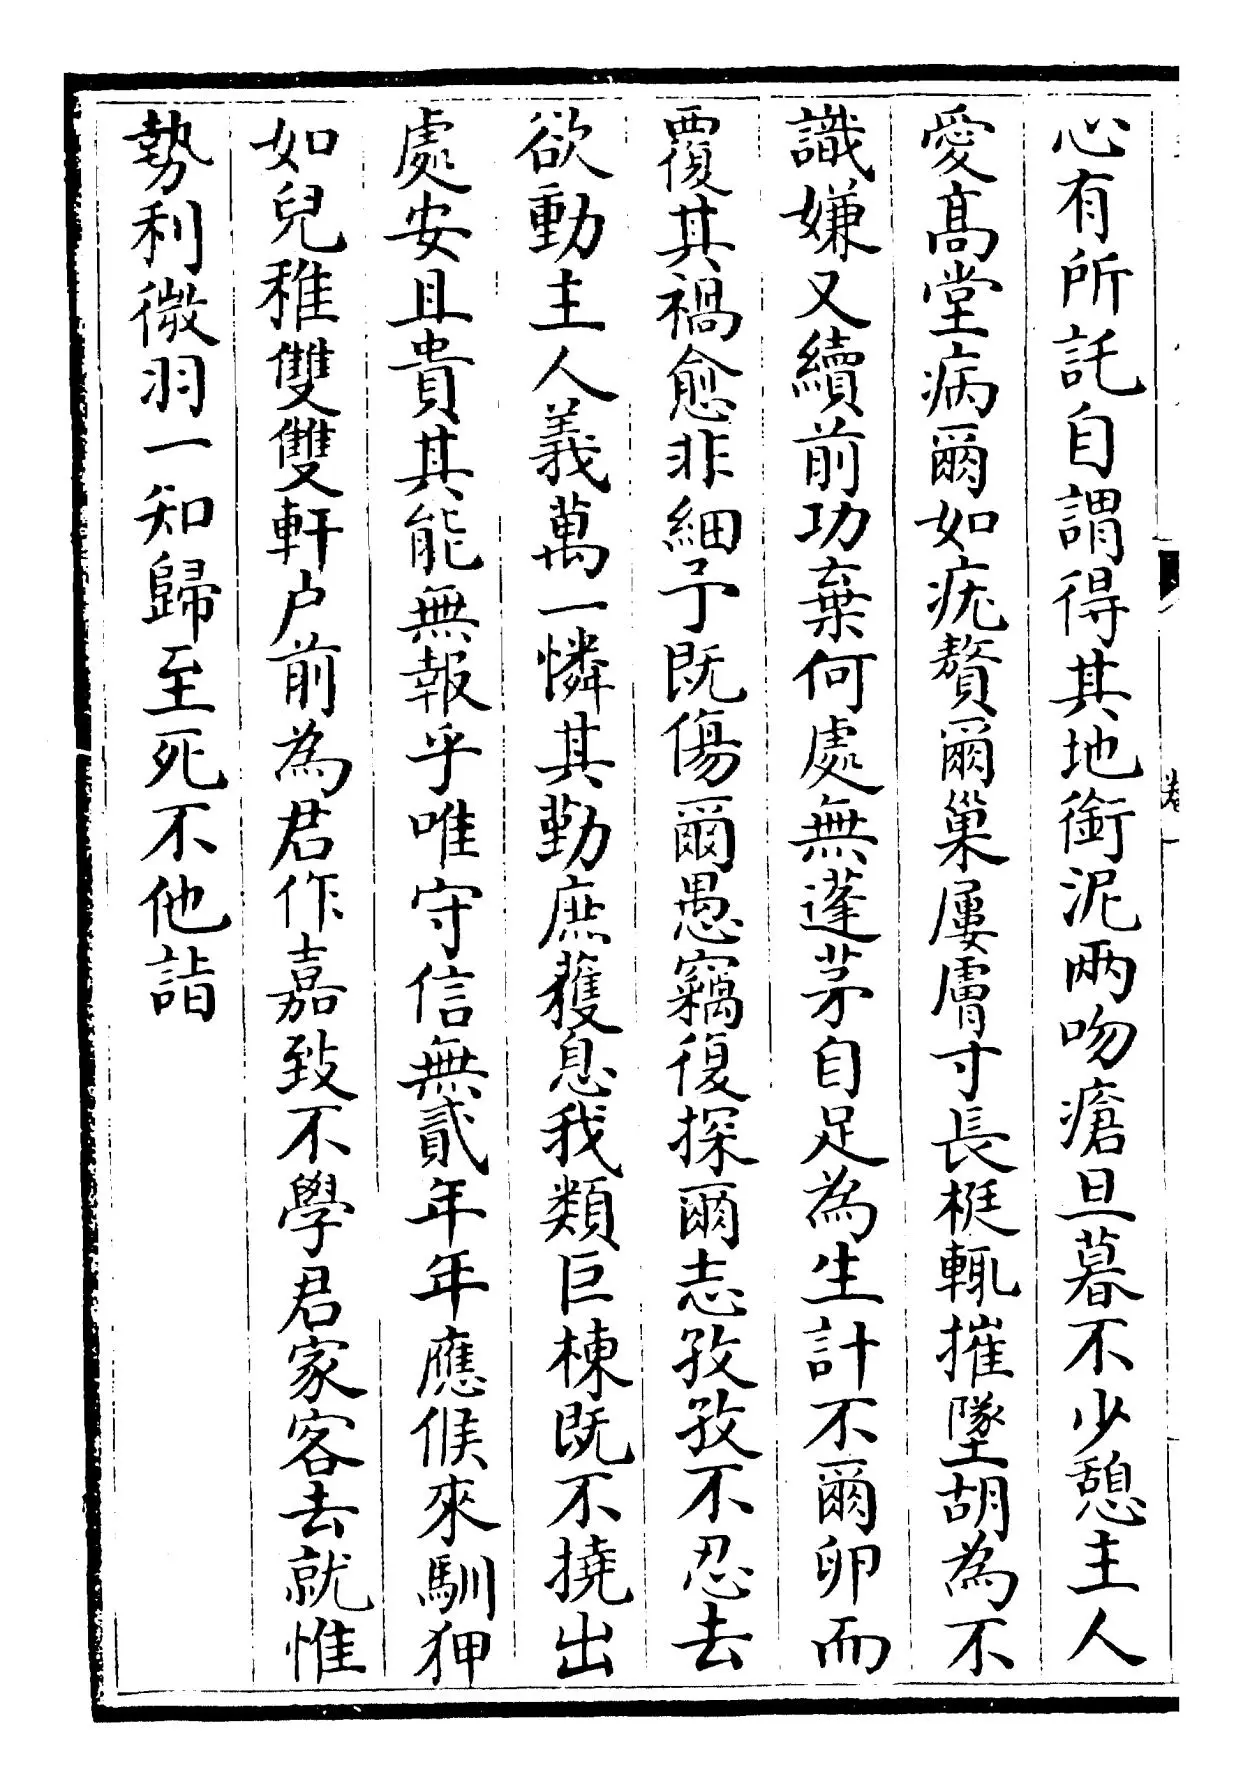 心有所託自謂得其地銜泥兩吻瘡旦暮不少憩主人
愛高堂病爾如疣贅爾巢屢膚寸長梃輒摧墜胡為不
識嫌又續前功棄何處無蓬茅自足為生計不爾卵而
覆其禍愈非細予既傷爾愚竊復探爾志孜孜不忍去
欲動主人義萬一憐其勤庶獲息我類巨棟既不撓出
處安且貴其能無報乎唯守信無貳年年應候來馴狎
如兒稚雙雙軒户前為君作嘉致不學君家客去就惟
勢利微羽一知歸至死不他詣